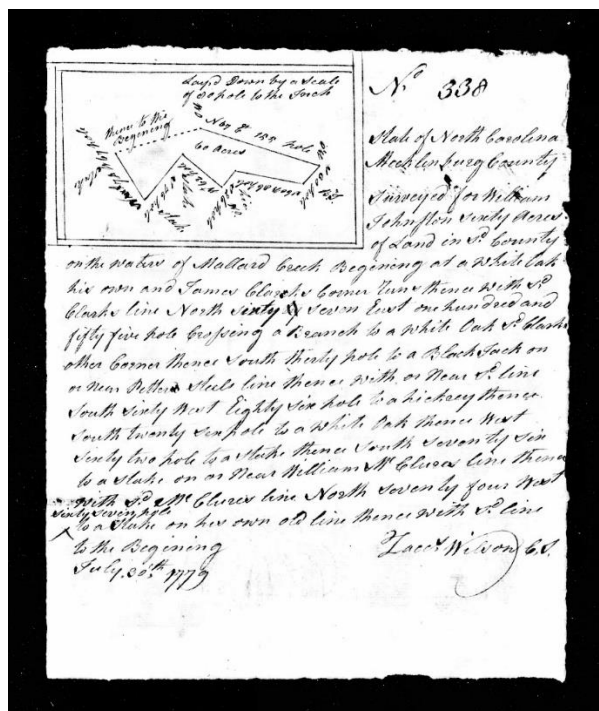 Layd Down by a Scale
of 80 pole to the Inch
thence to the
Begining
60 Acres
No 338
State of North Carolina
Mecklinburg County
Surveyed for William
Johnston Sixty Acres
of Land in Sd County
on the Waters of Mallard Creek Begining at a White Oak
his own and James Clarks Corner Runs thence with Sd
Clarks line North Sixty Seven East one hundred and
fifty five pole Crossing a Branch to a White Oak Sd Clarks
other Corner thence South thirty pole to a Black Jack on
or Near line thence with or Near Sd line
South Sixty West Eighty Six pole to a hickrey thence
South twenty Six pole to a White Oak thence West
Sixty two pole to a Stake thence South Seventy Six
to a Stake on or Near William Mc Clures line thence
with Sd Mc Clures line North Seventy four West
Sixty Seven pole
to a Stake on his own old line thence with Sd line
to the Begining
July 20th 1779
Zacc. Wilson C.S.